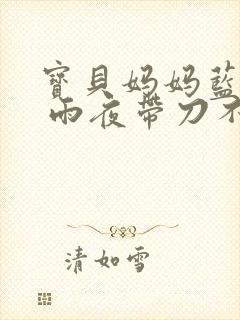 寶貝妈妈藍
雨夜帶刀不
清如雪